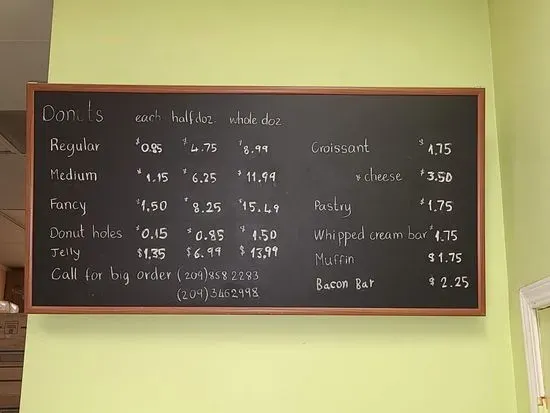 Donuts each half doz whole doz
Regular $0.85 $4.75 $8.99
Medium $1.15 $6.25 $11.99
Fancy $1.50 $8.25 $15.49
Donut holes $0.15 $0.85 $1.50
Jelly $1.35 $6.99 $13.99
Call for big order (209)858 2283
(209)3462998
Croissant $1.75
* cheese $3.50
Pastry $1.75
Whipped cream bar $1.75
Muffin $1.75
Bacon Bar $2.25